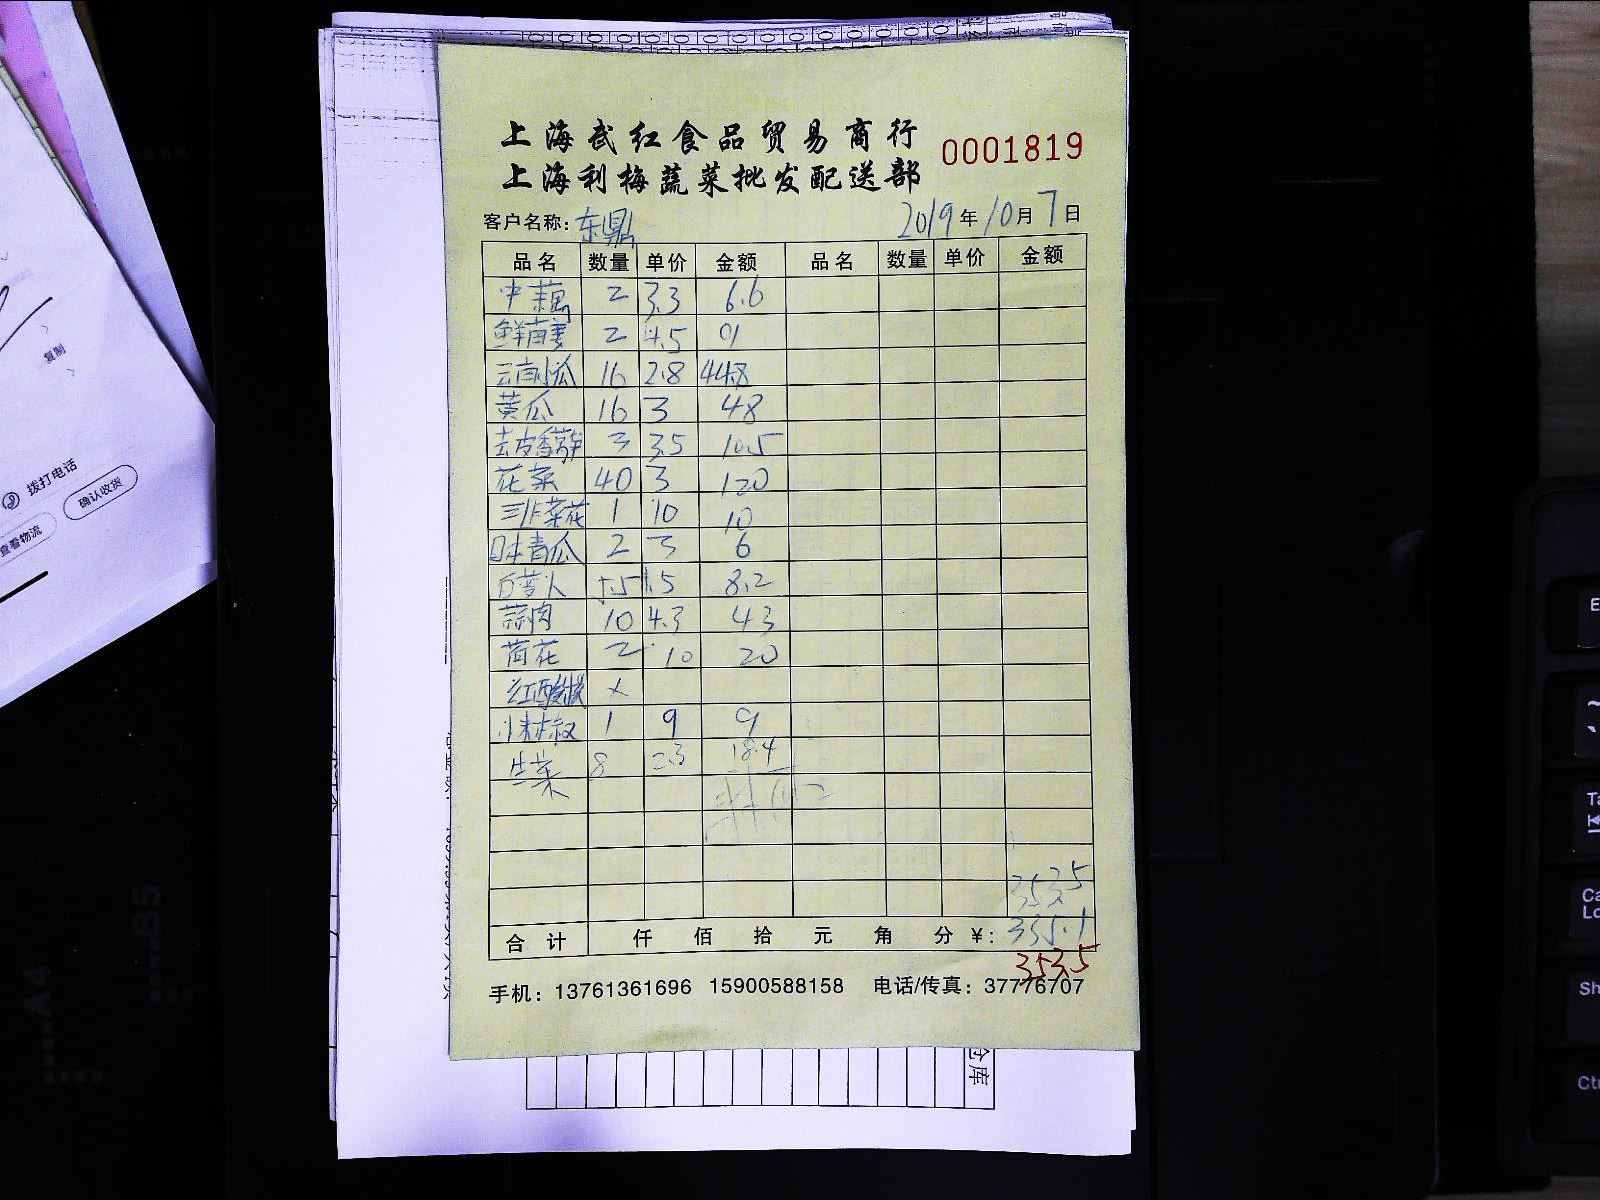 上海武红食品贸易商行
上海利梅蔬菜批发配送部
0001819
客户名称: 东鼎 2019年10月7日
品名 数量 单价 金额 品名 数量 单价 金额
中藕 2 3.3 6.6
鲜南姜 2 4.5 9
云南小瓜 16 2.8 44.8
黄瓜 16 3 48
去皮香芋 3 3.5 10.5
花菜 40 3 120
三色菜花 1 10 10
日本青瓜 2 3 6
西芹 5.5 1.5 8.2
蒜肉 10 4.3 43
荷花 2 10 20
红酸模 ×
小米椒 1 9 9
生菜 8 2.3 18.4
353.5
合计 仟 佰 拾 元 角 分 ¥: 335.1
353.5
手机: 13761361696 15900588158 电话/传真: 37776707
拨打电话
确认收货
查看物流
复制
仓库
A4
B5